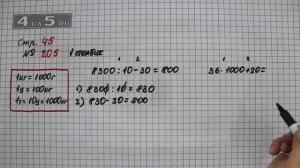 4DA5.RU
Стр. 45
№ 205 1 столбик
1 2
8300 : 10 - 30 = 800
1) 8300 : 10 = 830
2) 830 - 30 = 800
2
36 · 1000 + 20 =
1кг = 1000г
1ц = 100кг
1т = 10ц = 1000кг